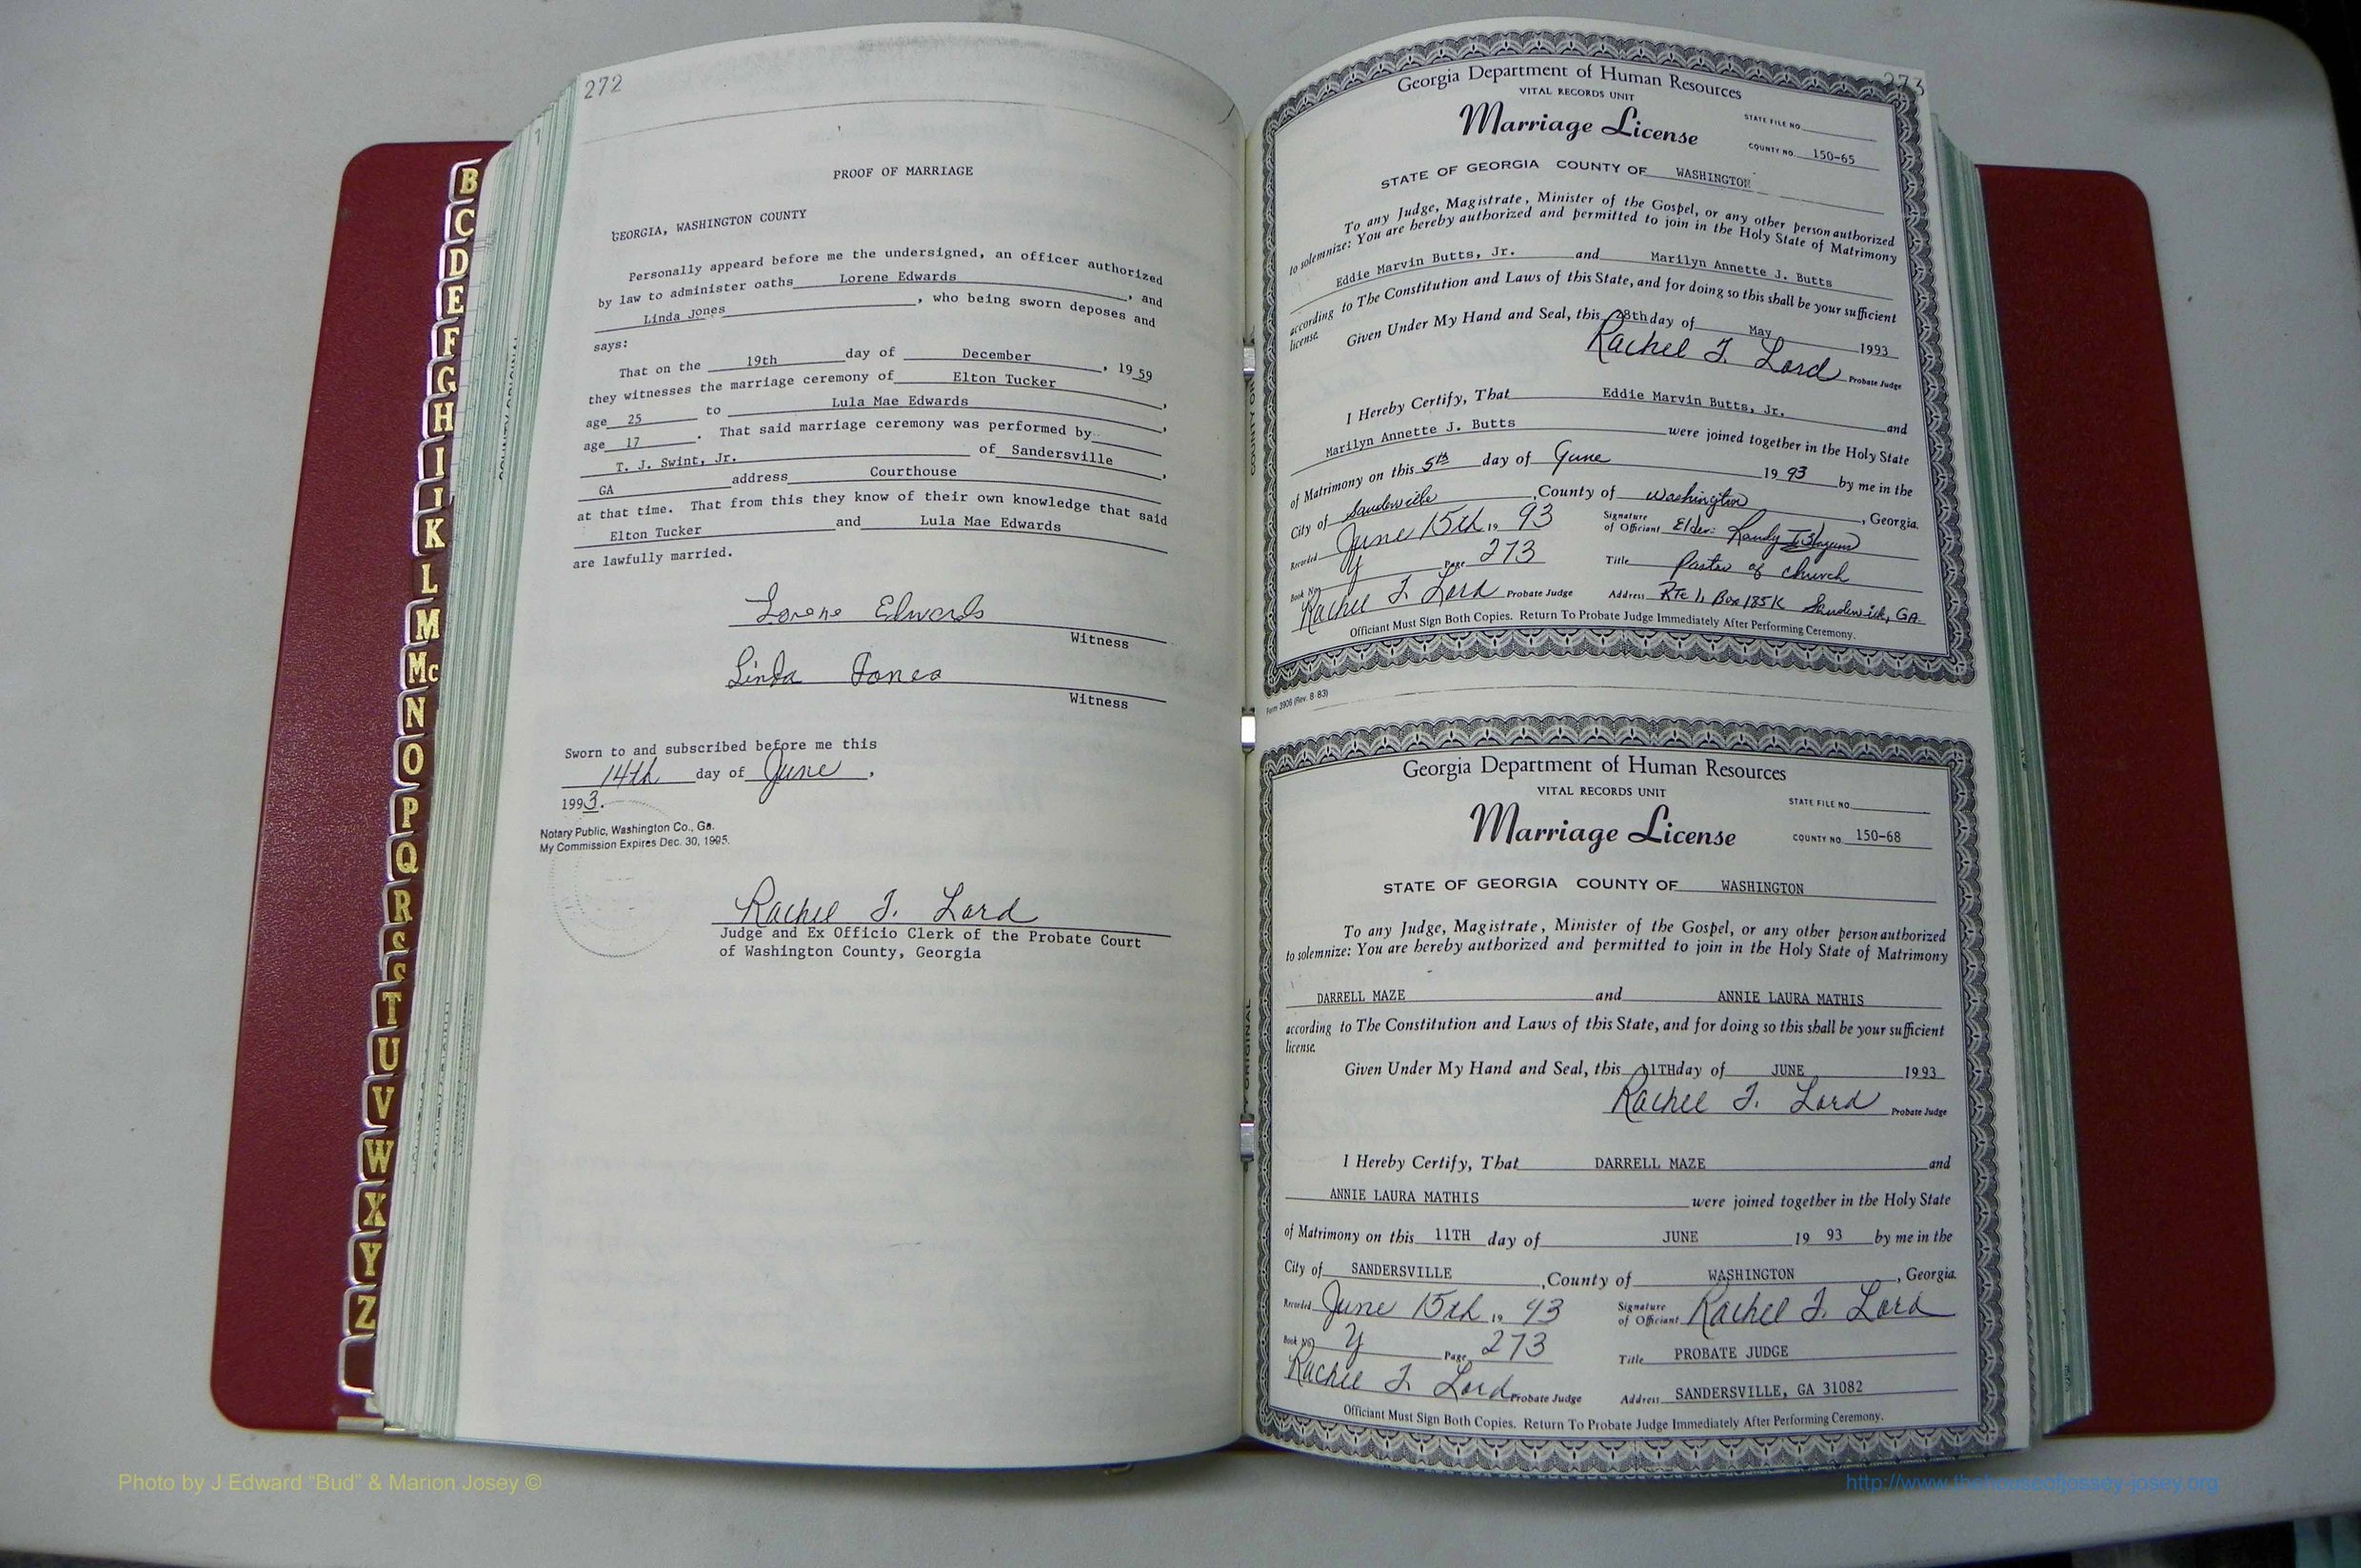 272
PROOF OF MARRIAGE
GEORGIA, WASHINGTON COUNTY
Personally appeard before me the undersigned, an officer authorized
by law to administer oaths Lorene Edwards, and
Linda Jones, who being sworn deposes and
says:
That on the 19th day of December, 1959
they witnesses the marriage ceremony of Elton Tucker,
age 25 to Lula Mae Edwards,
age 17. That said marriage ceremony was performed by
T. J. Swint, Jr. of Sandersville,
GA address Courthouse
at that time. That from this they know of their own knowledge that said
Elton Tucker and Lula Mae Edwards
are lawfully married.
Lorene Edwards
Witness
Linda Jones
Witness
Sworn to and subscribed before me this
14th day of June,
1993.
Notary Public, Washington Co., Ga.
My Commission Expires Dec. 30, 1995.
Rachel T. Lord
Judge and Ex Officio Clerk of the Probate Court
of Washington County, Georgia
B
C
D
E
F
G
H
I
J
K
L
M
Mc
N
O
P
Q
R
S
S
T
U
V
W
X
Y
Z
273
Georgia Department of Human Resources
VITAL RECORDS UNIT
Marriage License
STATE FILE NO.
COUNTY NO. 150-65
STATE OF GEORGIA COUNTY OF WASHINGTON
To any Judge, Magistrate, Minister of the Gospel, or any other person authorized
to solemnize: You are hereby authorized and permitted to join in the Holy State of Matrimony
Eddie Marvin Butts, Jr. and Marilyn Annette J. Butts
according to The Constitution and Laws of this State, and for doing so this shall be your sufficient
license.
Given Under My Hand and Seal, this 28th day of May 1993
Rachel T. Lord Probate Judge
I Hereby Certify, That Eddie Marvin Butts, Jr. and
Marilyn Annette J. Butts were joined together in the Holy State
of Matrimony on this 5th day of June 1993 by me in the
City of Sandersville, County of Washington, Georgia.
Recorded June 15th 19 93 Signature of Officiant Elder Randy
Book No. Y Page 273 Title Pastor of Church
Rachel T. Lord Probate Judge Address Rte 1, Box 185K Sandersville, GA
Officiant Must Sign Both Copies. Return To Probate Judge Immediately After Performing Ceremony.
Form 3906 (Rev. 8-83)
Georgia Department of Human Resources
VITAL RECORDS UNIT
Marriage License
STATE FILE NO.
COUNTY NO. 150-68
STATE OF GEORGIA COUNTY OF WASHINGTON
To any Judge, Magistrate, Minister of the Gospel, or any other person authorized
to solemnize: You are hereby authorized and permitted to join in the Holy State of Matrimony
DARRELL MAZE and ANNIE LAURA MATHIS
according to The Constitution and Laws of this State, and for doing so this shall be your sufficient
license.
Given Under My Hand and Seal, this 11TH day of JUNE 1993
Rachel T. Lord Probate Judge
I Hereby Certify, That DARRELL MAZE and
ANNIE LAURA MATHIS were joined together in the Holy State
of Matrimony on this 11TH day of JUNE 19 93 by me in the
City of SANDERSVILLE, County of WASHINGTON, Georgia.
Recorded June 15th 19 93 Signature of Officiant Rachel T. Lord
Book No. Y Page 273 Title PROBATE JUDGE
Rachel T. Lord Probate Judge Address SANDERSVILLE, GA 31082
Officiant Must Sign Both Copies. Return To Probate Judge Immediately After Performing Ceremony.
Photo by J Edward "Bud" & Marion Josey ©
http://www.thehouseofjossey-josey.org